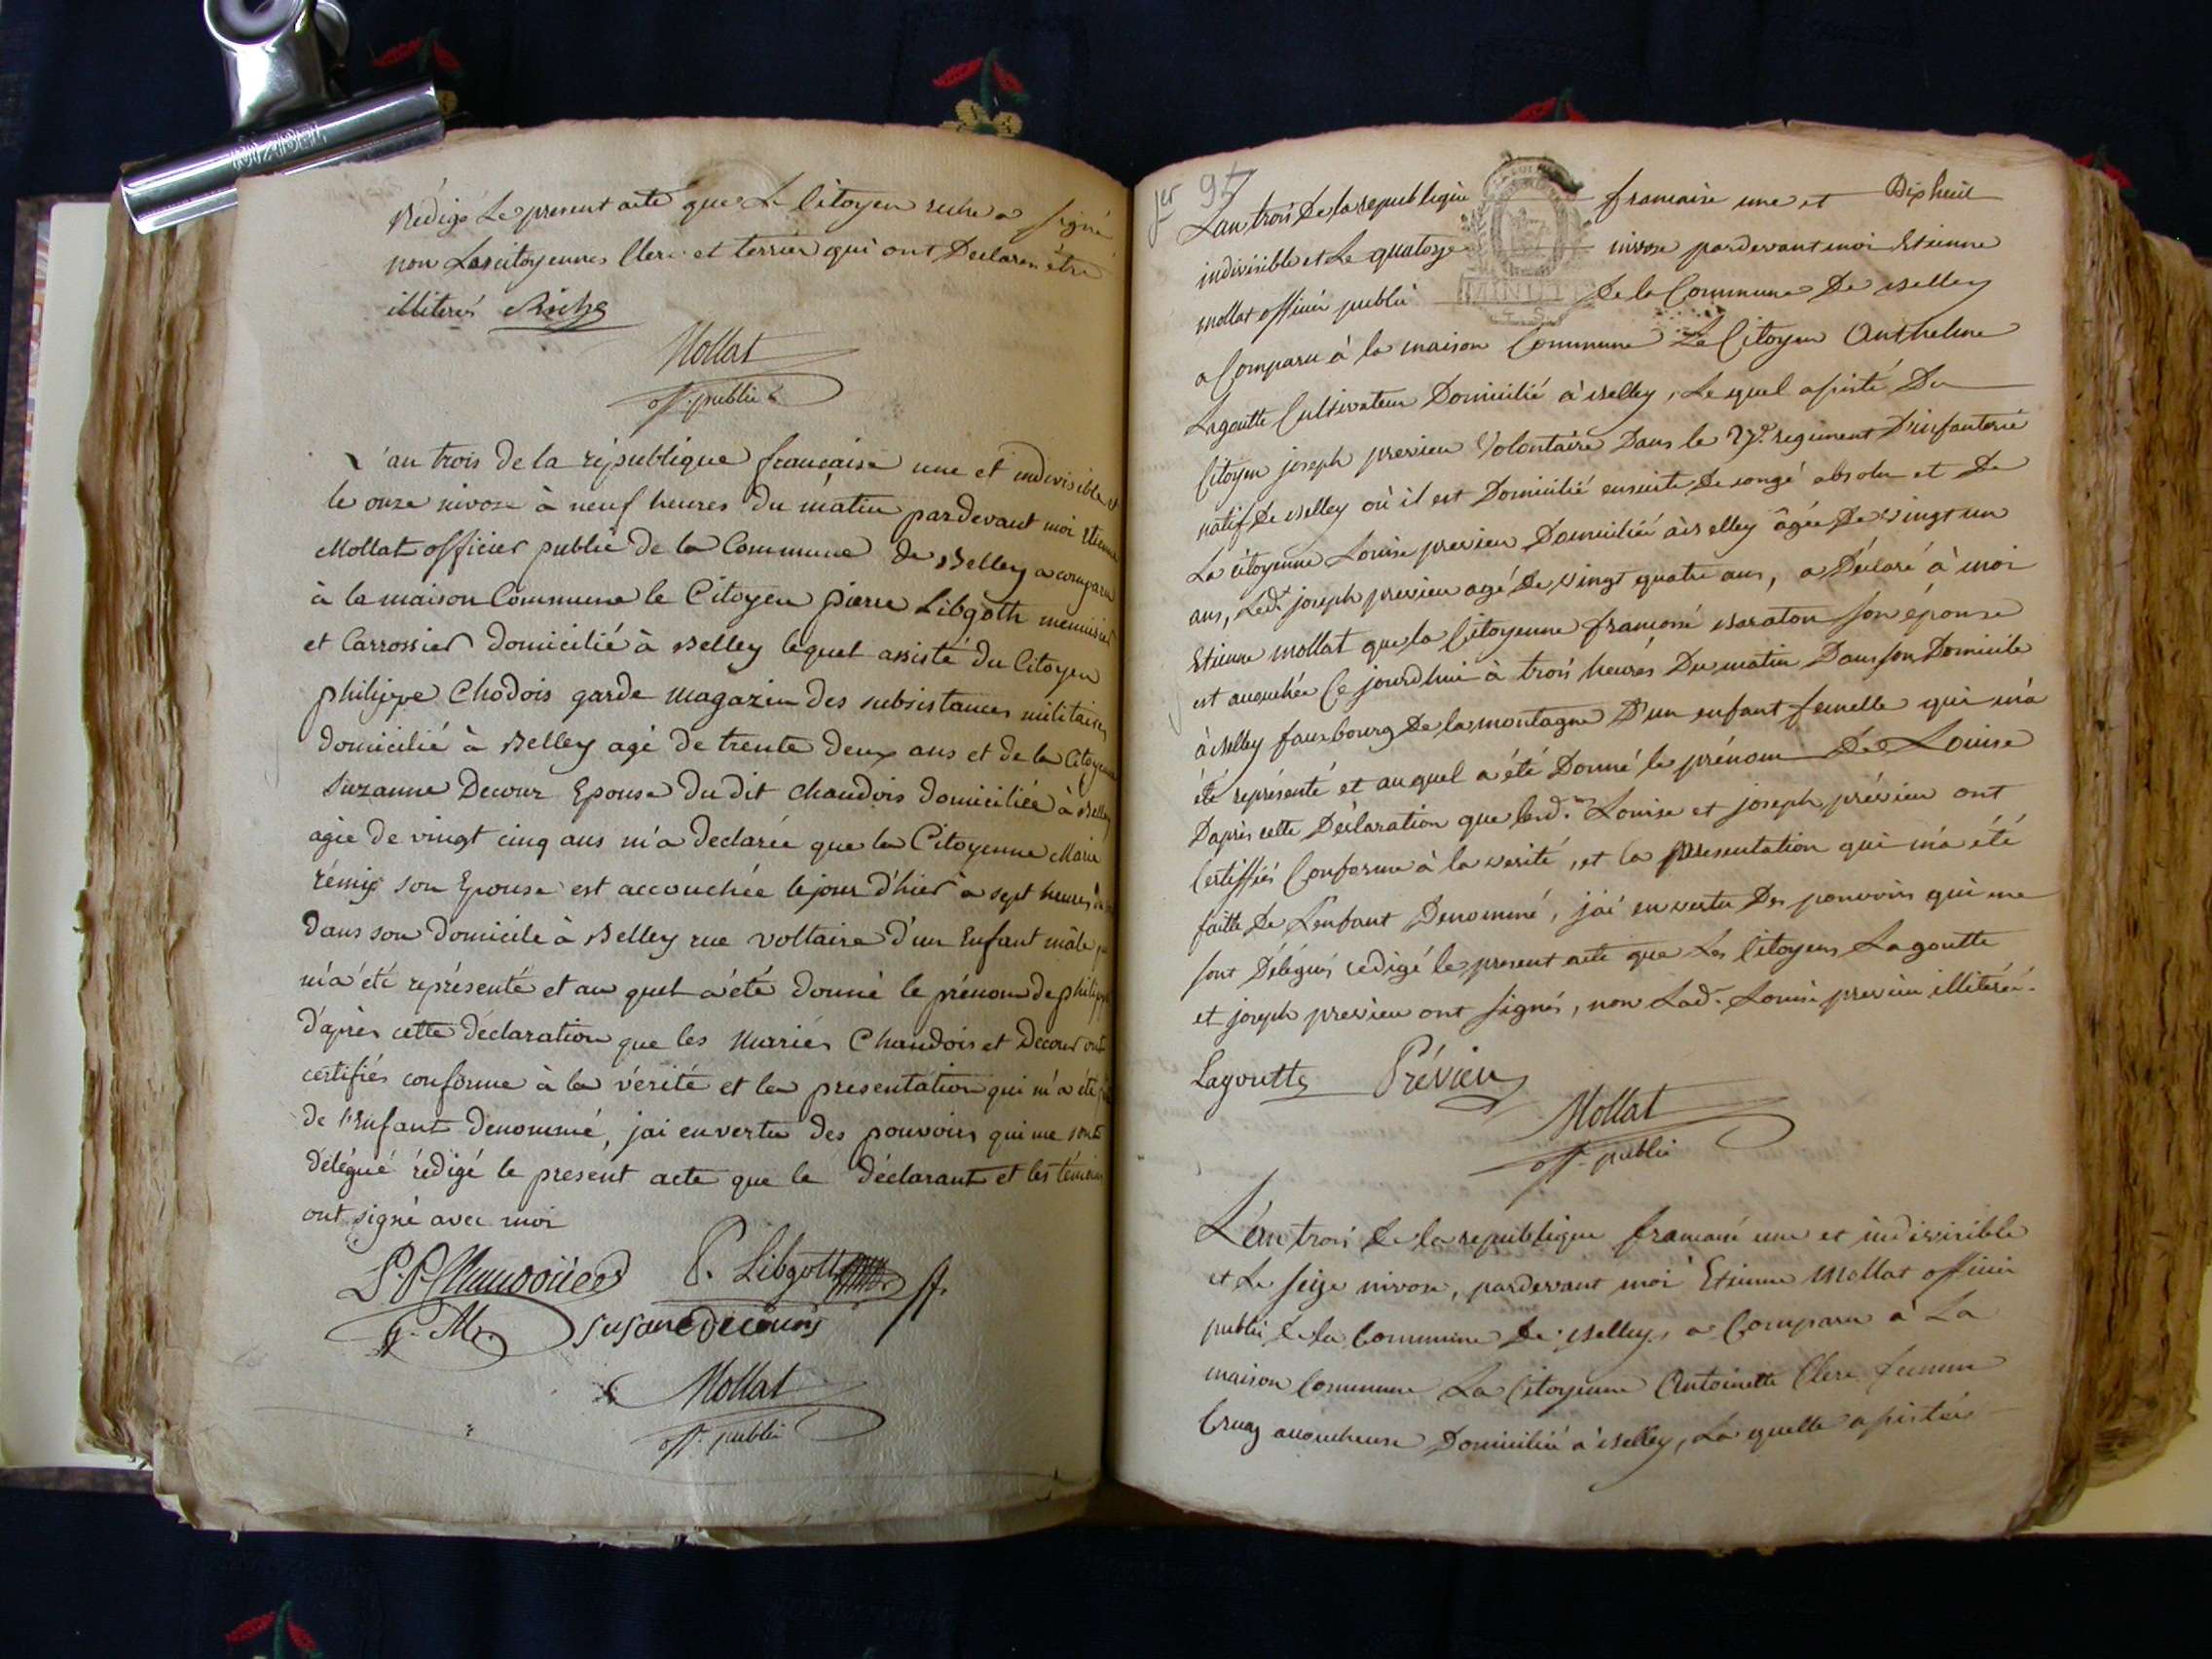 Rédigé Le present acte que Le Citoyen riche a signé
non Les citoyennes Clerc et terrier qui ont Declarées être
illiterés Riche
Mollat
off. public
L'an trois de la république francaise une et indivisible et
le onze nivose à neuf heures du matin pardevant moi Etienne
Mollat officier public de la Commune de Belley a comparu
à la maison Commune le Citoyen pierre Libgoth menuisier
et Carrossier domicilié à Belley lequel assisté du Citoyen
philippe Chodois garde magazin des subsistances militaires
domicilié à Belley agé de trente deux ans et de la Citoyenne
Suzanne Decour Epouse du dit chaudois domiciliée à Belley
agée de vingt cinq ans m'a declarée que la Citoyenne Marie
rémix son Epouse est accouchée le jour d'hier à sept heures du
Dans son domicile à Belley rue voltaire d'un Enfant mâle qui
m'a été représenté et au quel a été donné le prénom de philippe
d'après cette déclaration que les Mariés Chaudois et Decour ont
certifiés conforme à la vérité et la presentation qui m'a été
de l'Enfant denommé, jai en vertu des pouvoirs qui me sont
délégué rédigé le présent acte que le déclarant et les témoins
ont signé avec moi
P. Libgott
g. M. susane decours
Mollat
off. public
95
L'an trois De la republique francaise une et Dix huit
indivisible et Le quatorze nivose pardevant moi Etienne
mollat officier public De la Commune De Belley
MINUTE
a Comparu à la maison Commune Le Citoyen Anthelme
Lagoutte Cultivateur Domicilié à Belley, Le quel assisté Du
Citoyen joseph previeu Volontaire Dans le 27e. regiment D'infanterie
natif De Belley où il est Domicilié ensuite De congé absolu et De
La citoyenne Louise previeu Domiciliée à Belley âgée De vingt un
ans, Led.t joseph previeu agé De vingt quatre ans, a Déclaré à moi
Etienne mollat que la Citoyenne francoise Baraton son épouse
est accouchée Ce jourd'hui à trois heures Du matin Dans son Domicile
à Belley fauxbourg De la montagne D'un enfant femelle qui m'a
été représenté et auquel a été Donné le prénom De Louise
D'après cette Déclaration que lesd. Louise et joseph prévieu ont
Certiffiés Conforme à la verité, et la presentation qui m'a été
faitte De L'enfant Denommé, j'ai en vertu Des pouvoirs qui me
sont Délégués redigé le present acte que Les Citoyens Lagoutte
et joseph previeu ont signés, non Lad. Louise previeu illiterée.
Lagoutte Prévieu
Mollat
off. public
L'an trois De la republique francaise une et indivisible
et Le seize nivose, pardevant moi Etienne Mollat officier
public De la Commune De Belley, a Comparu à La
maison Commune La Citoyenne Antoinette Clerc femme
Cruaz accoucheuse Domiciliée à Belley, La quelle assistée